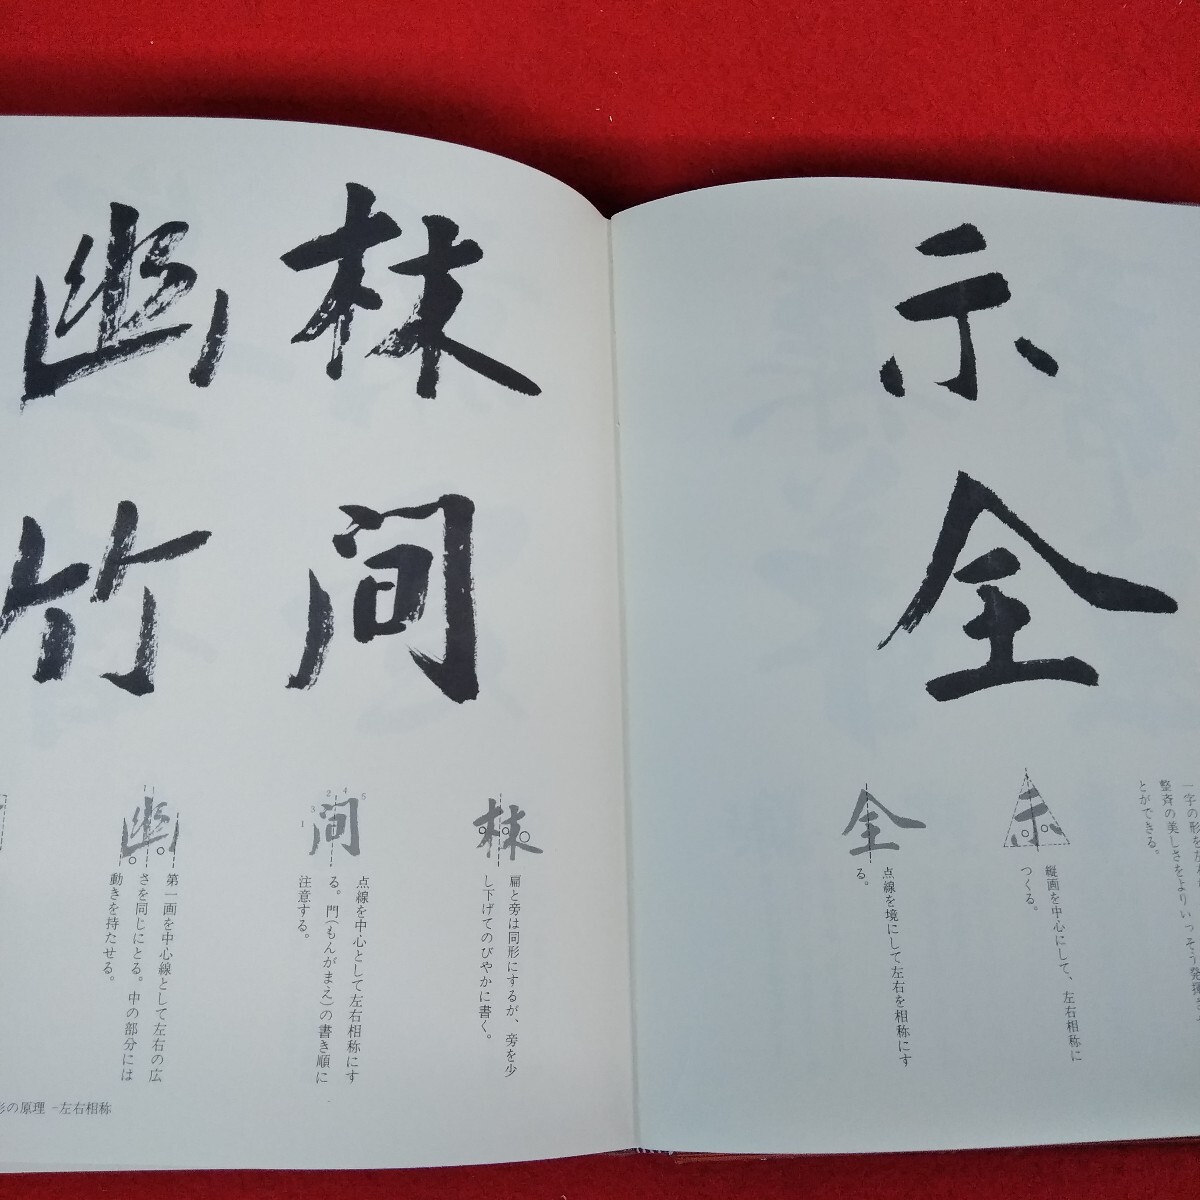 示
全
一字の形を左右
整斉の美しさをよりいっそう発揮
とができる。
示
縦画を中心にして、左右相称に
つくる。
全
点線を境にして左右を相称にす
る。
林
間
幽
竹
林
扁と旁は同形にするが、旁を少
し下げてのびやかに書く。
間
3 2 4 5
点線を中心として左右相称にす
る。門(もんがまえ)の書き順に
注意する。
幽
第一画を中心線として左右の広
さを同じにとる。中の部分には
動きを持たせる。
形の原理 -左右相称